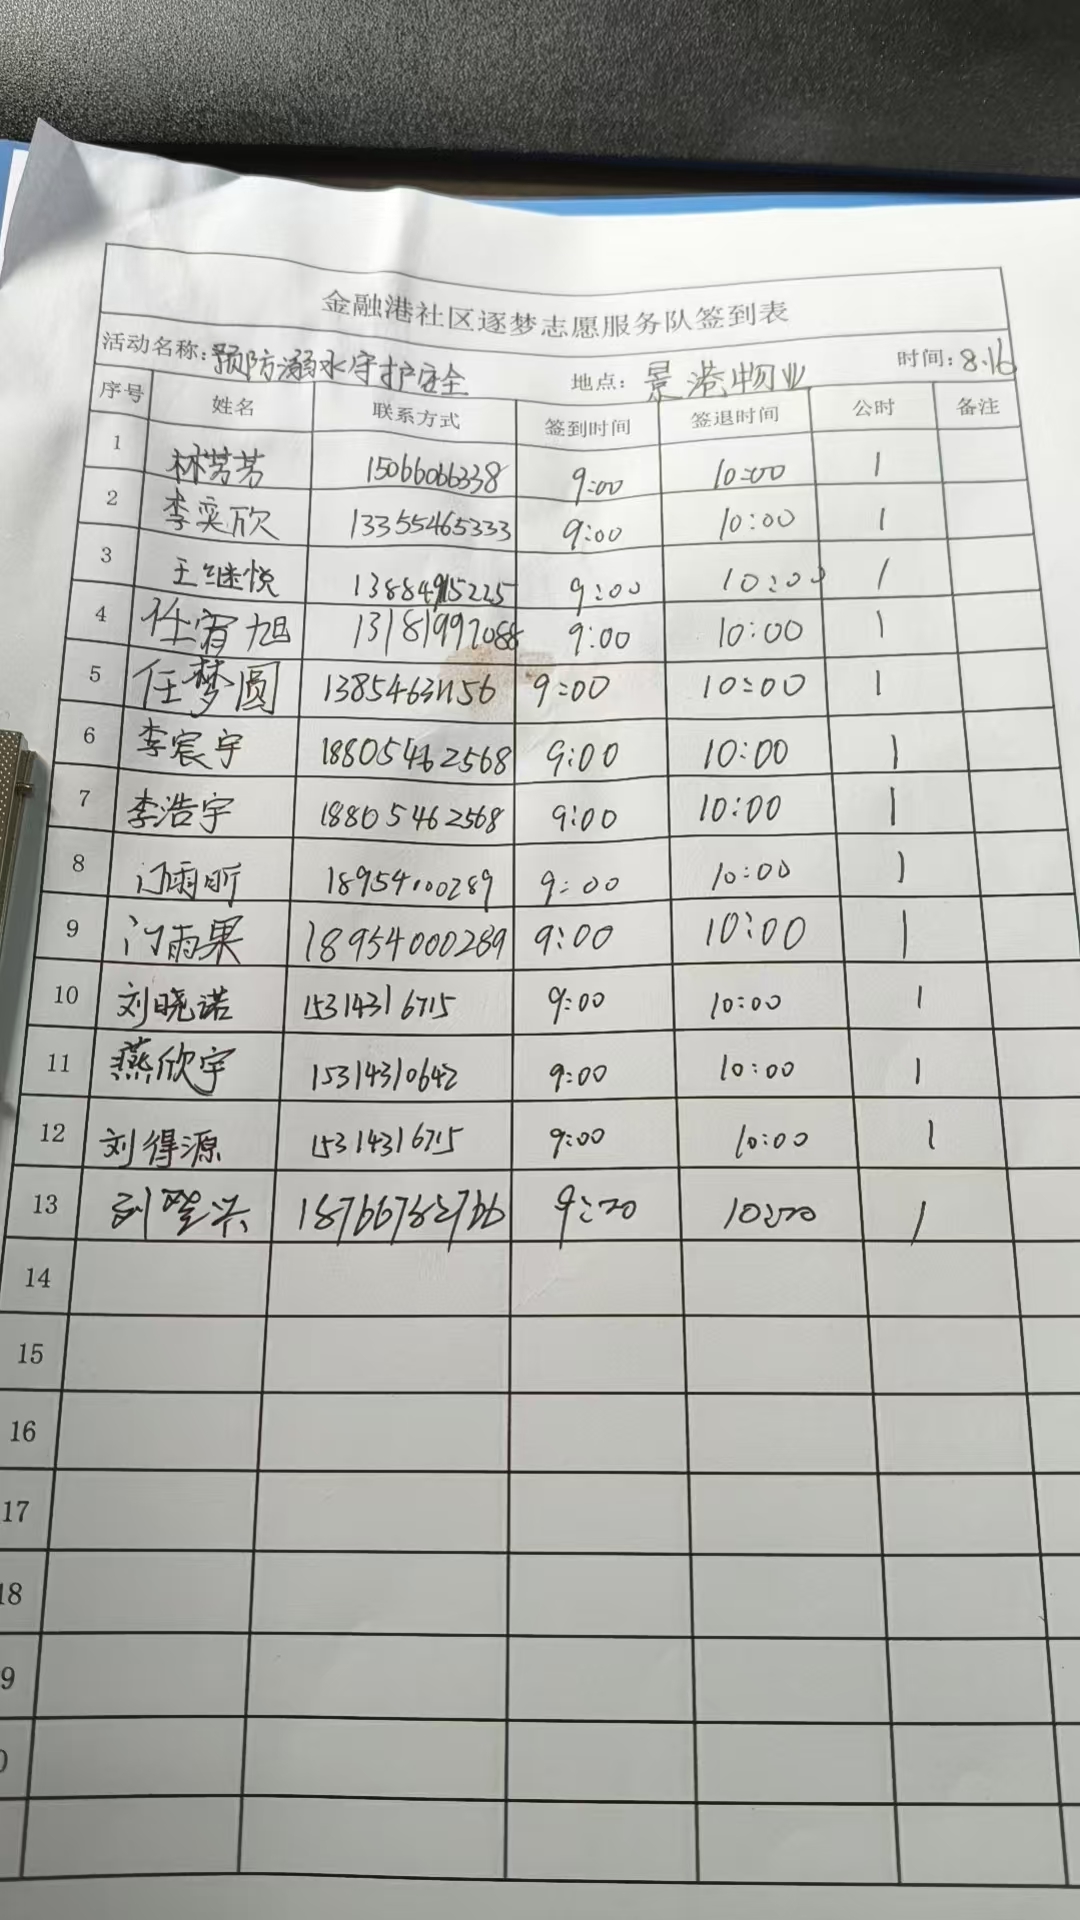 金融港社区逐梦志愿服务队签到表
活动名称:预防溺水守护安全 地点:景港物业 时间:8.16
序号 姓名 联系方式 签到时间 签退时间 公时 备注
1 林芳芳 15066066338 9:00 10:00 1
2 李奕欣 13355465333 9:00 10:00 1
3 王继悦 13884915225 9:00 10:00 1
4 任宥旭 13181997088 9:00 10:00 1
5 任梦圆 13854631156 9:00 10:00 1
6 李宸宇 18805462568 9:00 10:00 1
7 李浩宇 18805462568 9:00 10:00 1
8 门雨昕 18954000289 9:00 10:00 1
9 门雨果 18954000289 9:00 10:00 1
10 刘晓诺 15314316715 9:00 10:00 1
11 燕欣宇 15314310642 9:00 10:00 1
12 刘得源 15314316715 9:00 10:00 1
13 9:20 10:20 1
14
15
16
17
18
9
0